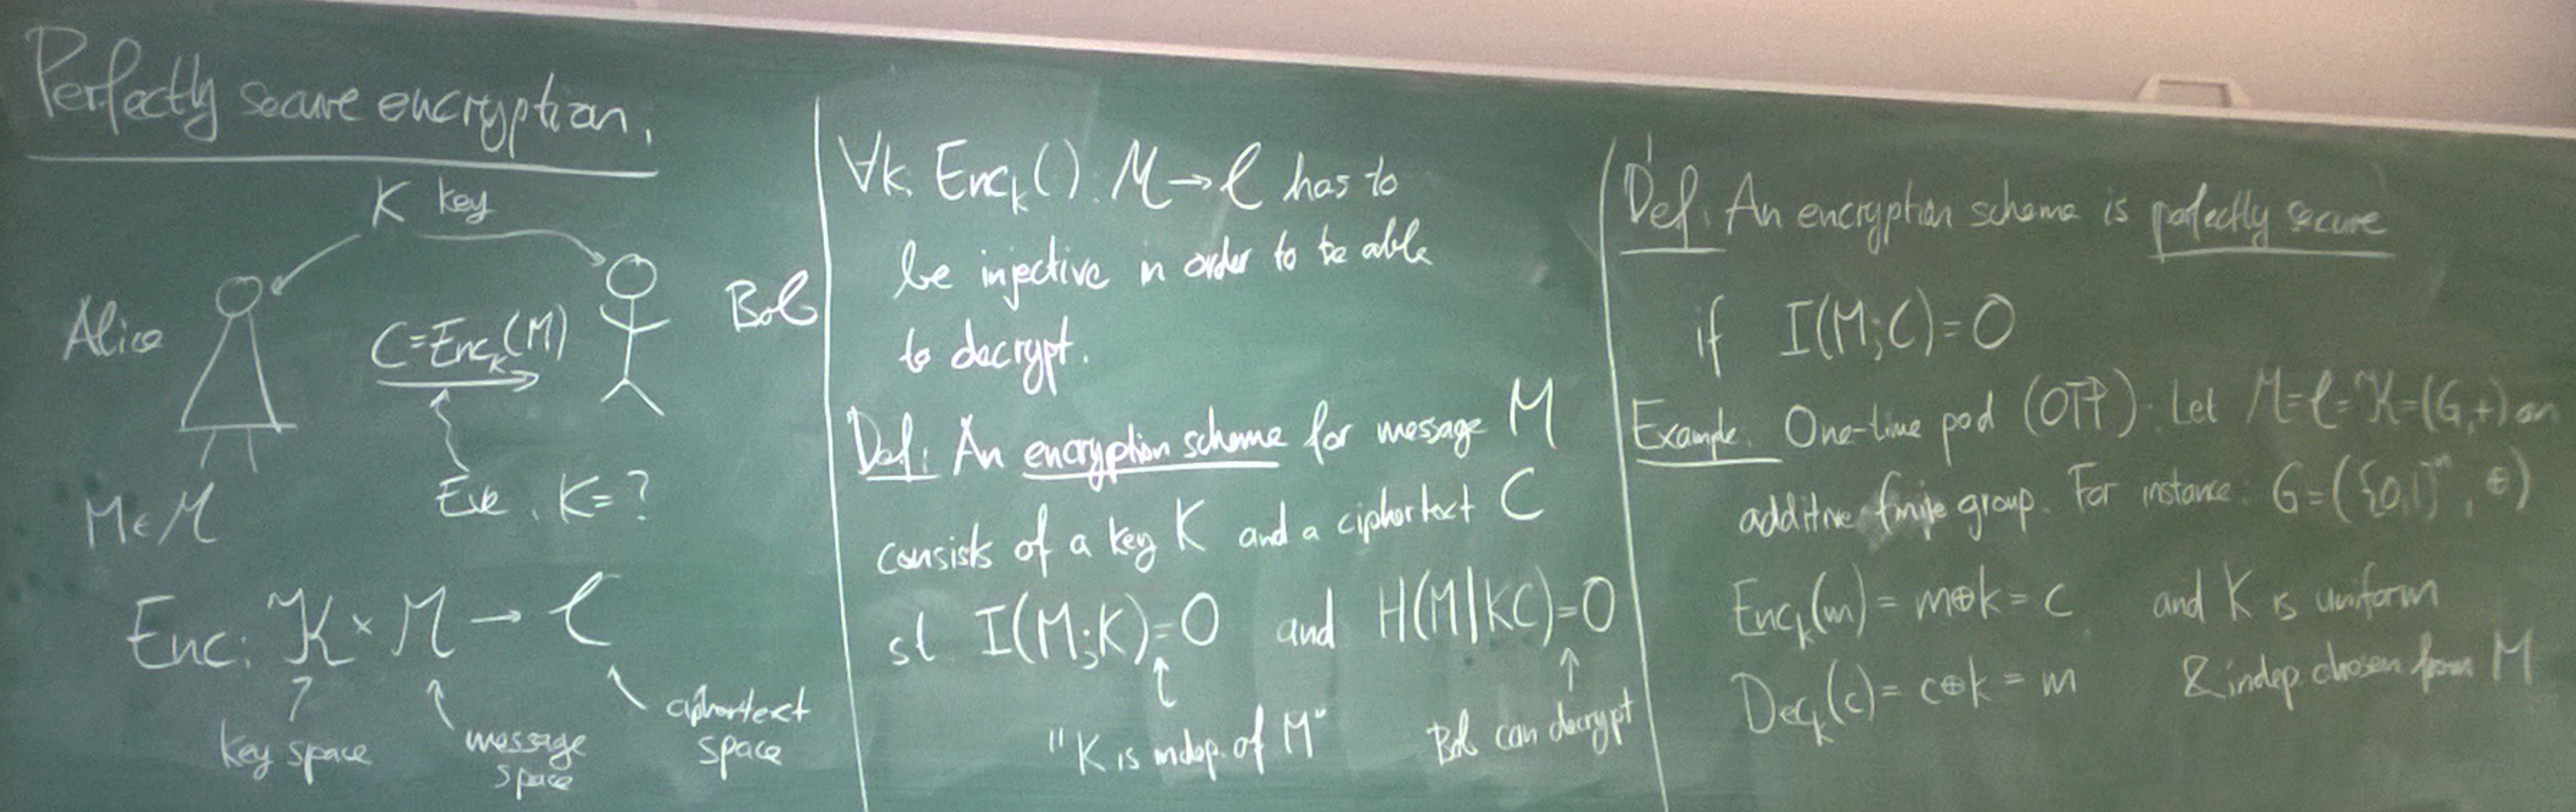 Perfectly secure encryption.
K key
Alice
C=Enc_K(M)
Bob
Eve. K=?
M∈ℳ
Enc: 𝒦 × ℳ → 𝒞
key space
message
space
ciphertext
space
∀k. Enc_k(): ℳ→𝒞 has to
be injective in order to be able
to decrypt.
Def: An encryption scheme for message M
consists of a key K and a ciphertext C
st I(M;K)=0 and H(M|KC)=0
"K is indep. of M"
Bob can decrypt
Def: An encryption scheme is perfectly secure
if I(M;C)=0
Example: One-time pad (OTP): Let ℳ=𝒞=𝒦=(G,+) an
additive finite group. For instance: G=({0,1}ⁿ, ⊕)
Enc_k(m) = m⊕k = c and K is uniform
Dec_k(c) = c⊕k = m & indep. chosen from M